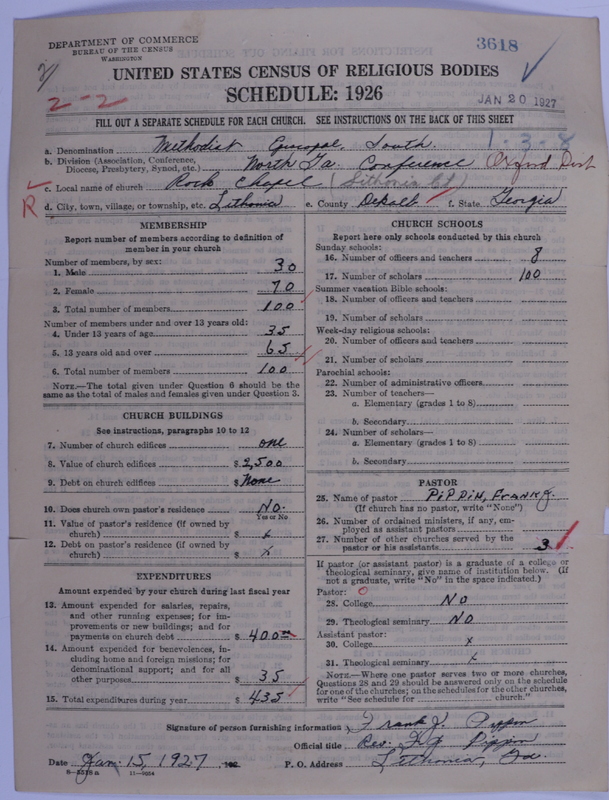 DEPARTMENT OF COMMERCE
BUREAU OF THE CENSUS
WASHINGTON
3618
2-2
UNITED STATES CENSUS OF RELIGIOUS BODIES
SCHEDULE: 1926
JAN 20 1927
FILL OUT A SEPARATE SCHEDULE FOR EACH CHURCH. SEE INSTRUCTIONS ON THE BACK OF THIS SHEET
1-3-8
a. Denomination Methodist Episcopal, South.
b. Division (Association, Conference, Diocese, Presbytery, Synod, etc.) North Ga. Conference Oxford Dist
c. Local name of church Rock Chapel (Lithonia Ct)
R
d. City, town, village, or township, etc. Lithonia e. County Dekalb f. State Georgia
MEMBERSHIP
Report number of members according to definition of
member in your church
Number of members, by sex:
1. Male 30
2. Female 70
3. Total number of members 100
Number of members under and over 13 years old:
4. Under 13 years of age 35
5. 13 years old and over 65
6. Total number of members 100
NOTE.—The total given under Question 6 should be the
same as the total of males and females given under Question 3.
CHURCH BUILDINGS
See instructions, paragraphs 10 to 12
7. Number of church edifices one
8. Value of church edifices $2,500
9. Debt on church edifices $None
10. Does church own pastor's residence No.
Yes or No
11. Value of pastor's residence (if owned by
church) $ x
12. Debt on pastor's residence (if owned by
church) $ x
EXPENDITURES
Amount expended by your church during last fiscal year
13. Amount expended for salaries, repairs,
and other running expenses; for im-
provements or new buildings; and for
payments on church debt $ 400
14. Amount expended for benevolences, in-
cluding home and foreign missions; for
denominational support; and for all
other purposes $ 35
15. Total expenditures during year $ 435
CHURCH SCHOOLS
Report here only schools conducted by this church
Sunday schools:
16. Number of officers and teachers 8
17. Number of scholars 100
Summer vacation Bible schools:
18. Number of officers and teachers
19. Number of scholars
Week-day religious schools:
20. Number of officers and teachers
21. Number of scholars
Parochial schools:
22. Number of administrative officers
23. Number of teachers—
a. Elementary (grades 1 to 8)
b. Secondary
24. Number of scholars—
a. Elementary (grades 1 to 8)
b. Secondary
PASTOR
25. Name of pastor PIPPIN, FRANK J.
(If church has no pastor, write "None")
26. Number of ordained ministers, if any, em-
ployed as assistant pastors
27. Number of other churches served by the
pastor or his assistants 3
If pastor (or assistant pastor) is a graduate of a college or
theological seminary, give name of institution below. (If
not a graduate, write "No" in the space indicated.)
Pastor: 0
28. College No
29. Theological seminary No
Assistant pastor:
30. College x
31. Theological seminary x
NOTE.—Where one pastor serves two or more churches,
Questions 28 and 29 should be answered only on the schedule
for one of the churches; on the schedules for the other churches,
write "See schedule for church."
Signature of person furnishing information Frank J. Pippin
Official title Rev. F. J. Pippin
Date Jan. 15, 1927 , 192 P. O. Address Lithonia, Ga.
8—5518 a 11—9054